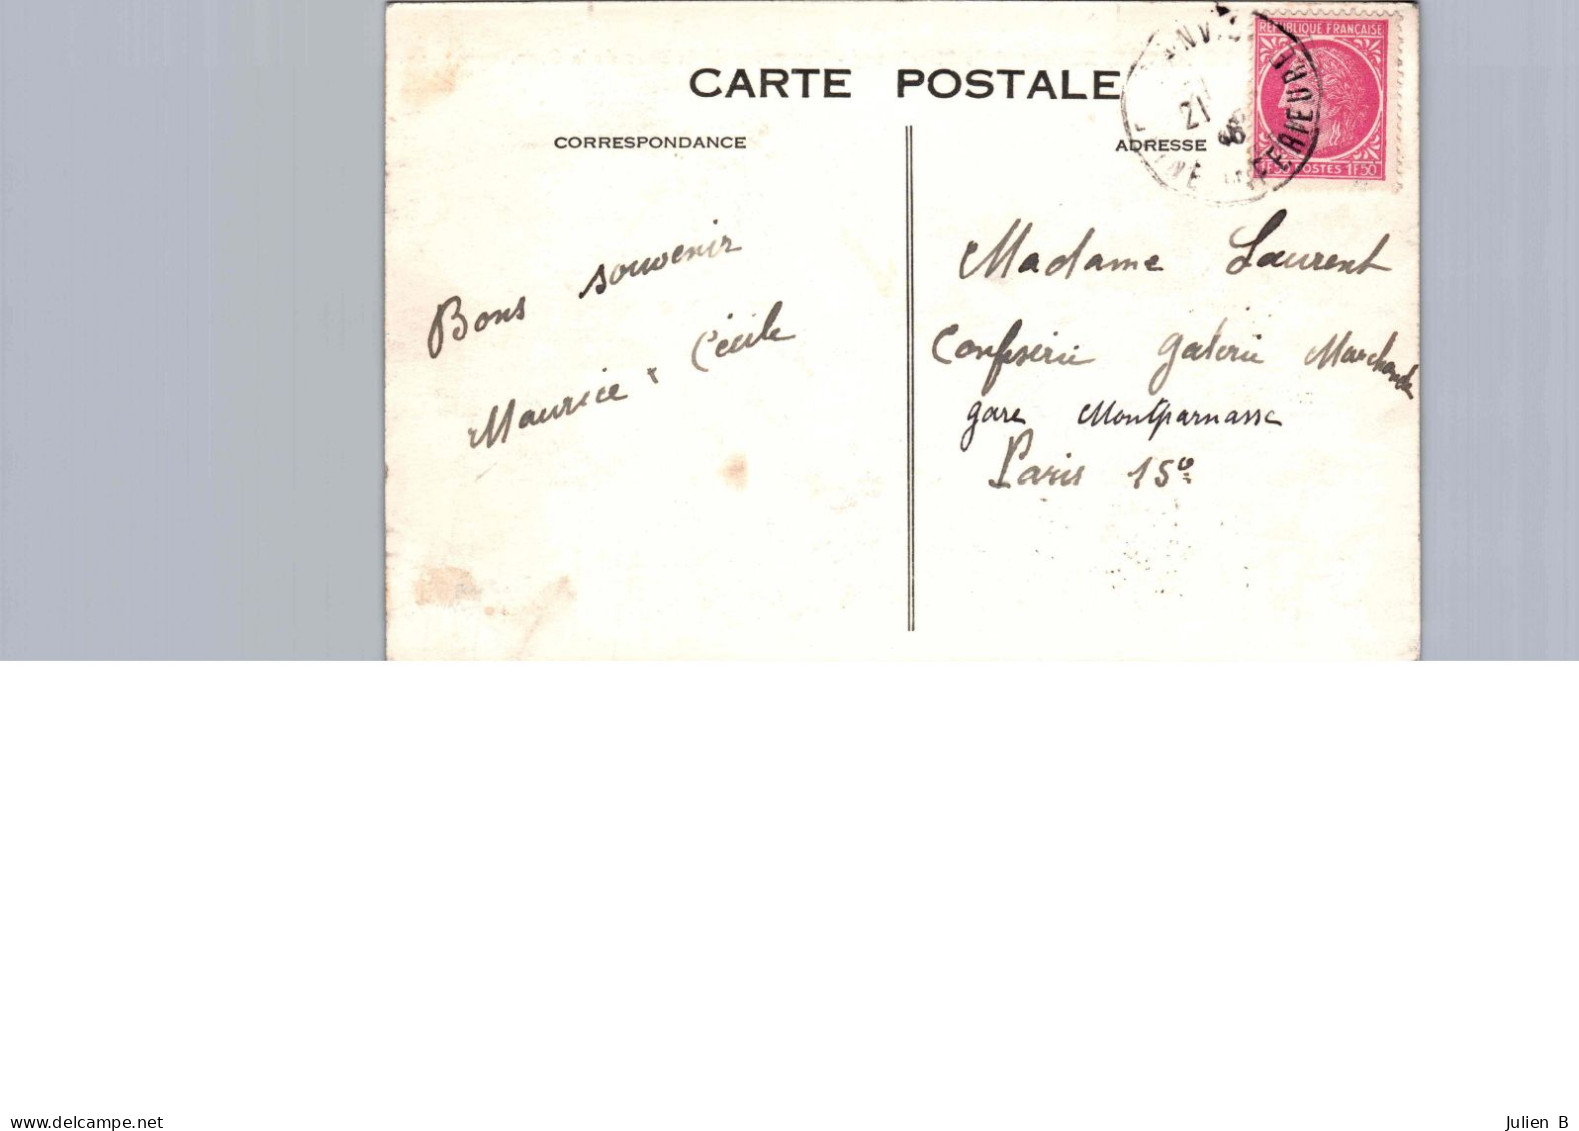 CARTE POSTALE
CORRESPONDANCE
ADRESSE
RÉPUBLIQUE FRANÇAISE
POSTES 1F50
21
INFERIEURE
Bons souvenir
Maurice & Cécile
Madame Laurent
Confiserie Galerie Marchande
gare Montparnasse
Paris 15e
www.delcampe.net
Julien B